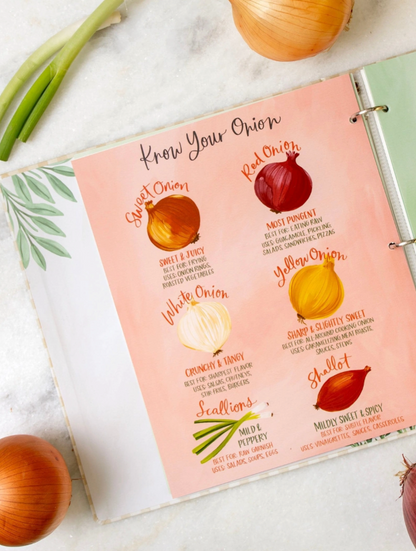 Know Your Onion
Sweet Onion
SWEET & JUICY
BEST FOR: FRYING
USES: ONION RINGS,
ROASTED VEGETABLES
Red Onion
MOST PUNGENT
BEST FOR: EATING RAW
USES: GUACAMOLE, PICKLING,
SALADS, SANDWICHES, PIZZAS
White Onion
CRUNCHY & TANGY
BEST FOR: SHARPEST FLAVOR
USES: SALSAS, CHUTNEYS,
STIR-FRIES, BURGERS
Yellow Onion
SHARP & SLIGHTLY SWEET
BEST FOR: ALL AROUND COOKING ONION
USES: CARAMELIZING, MEAT ROASTS,
SAUCES, STEWS
Scallions
MILD &
PEPPERY
BEST FOR: RAW GARNISH
USES: SALADS, SOUPS, EGGS
Shallot
MILDLY SWEET & SPICY
BEST FOR: SUBTLE FLAVOR
USES: VINAIGRETTES, SAUCES, CASSEROLES